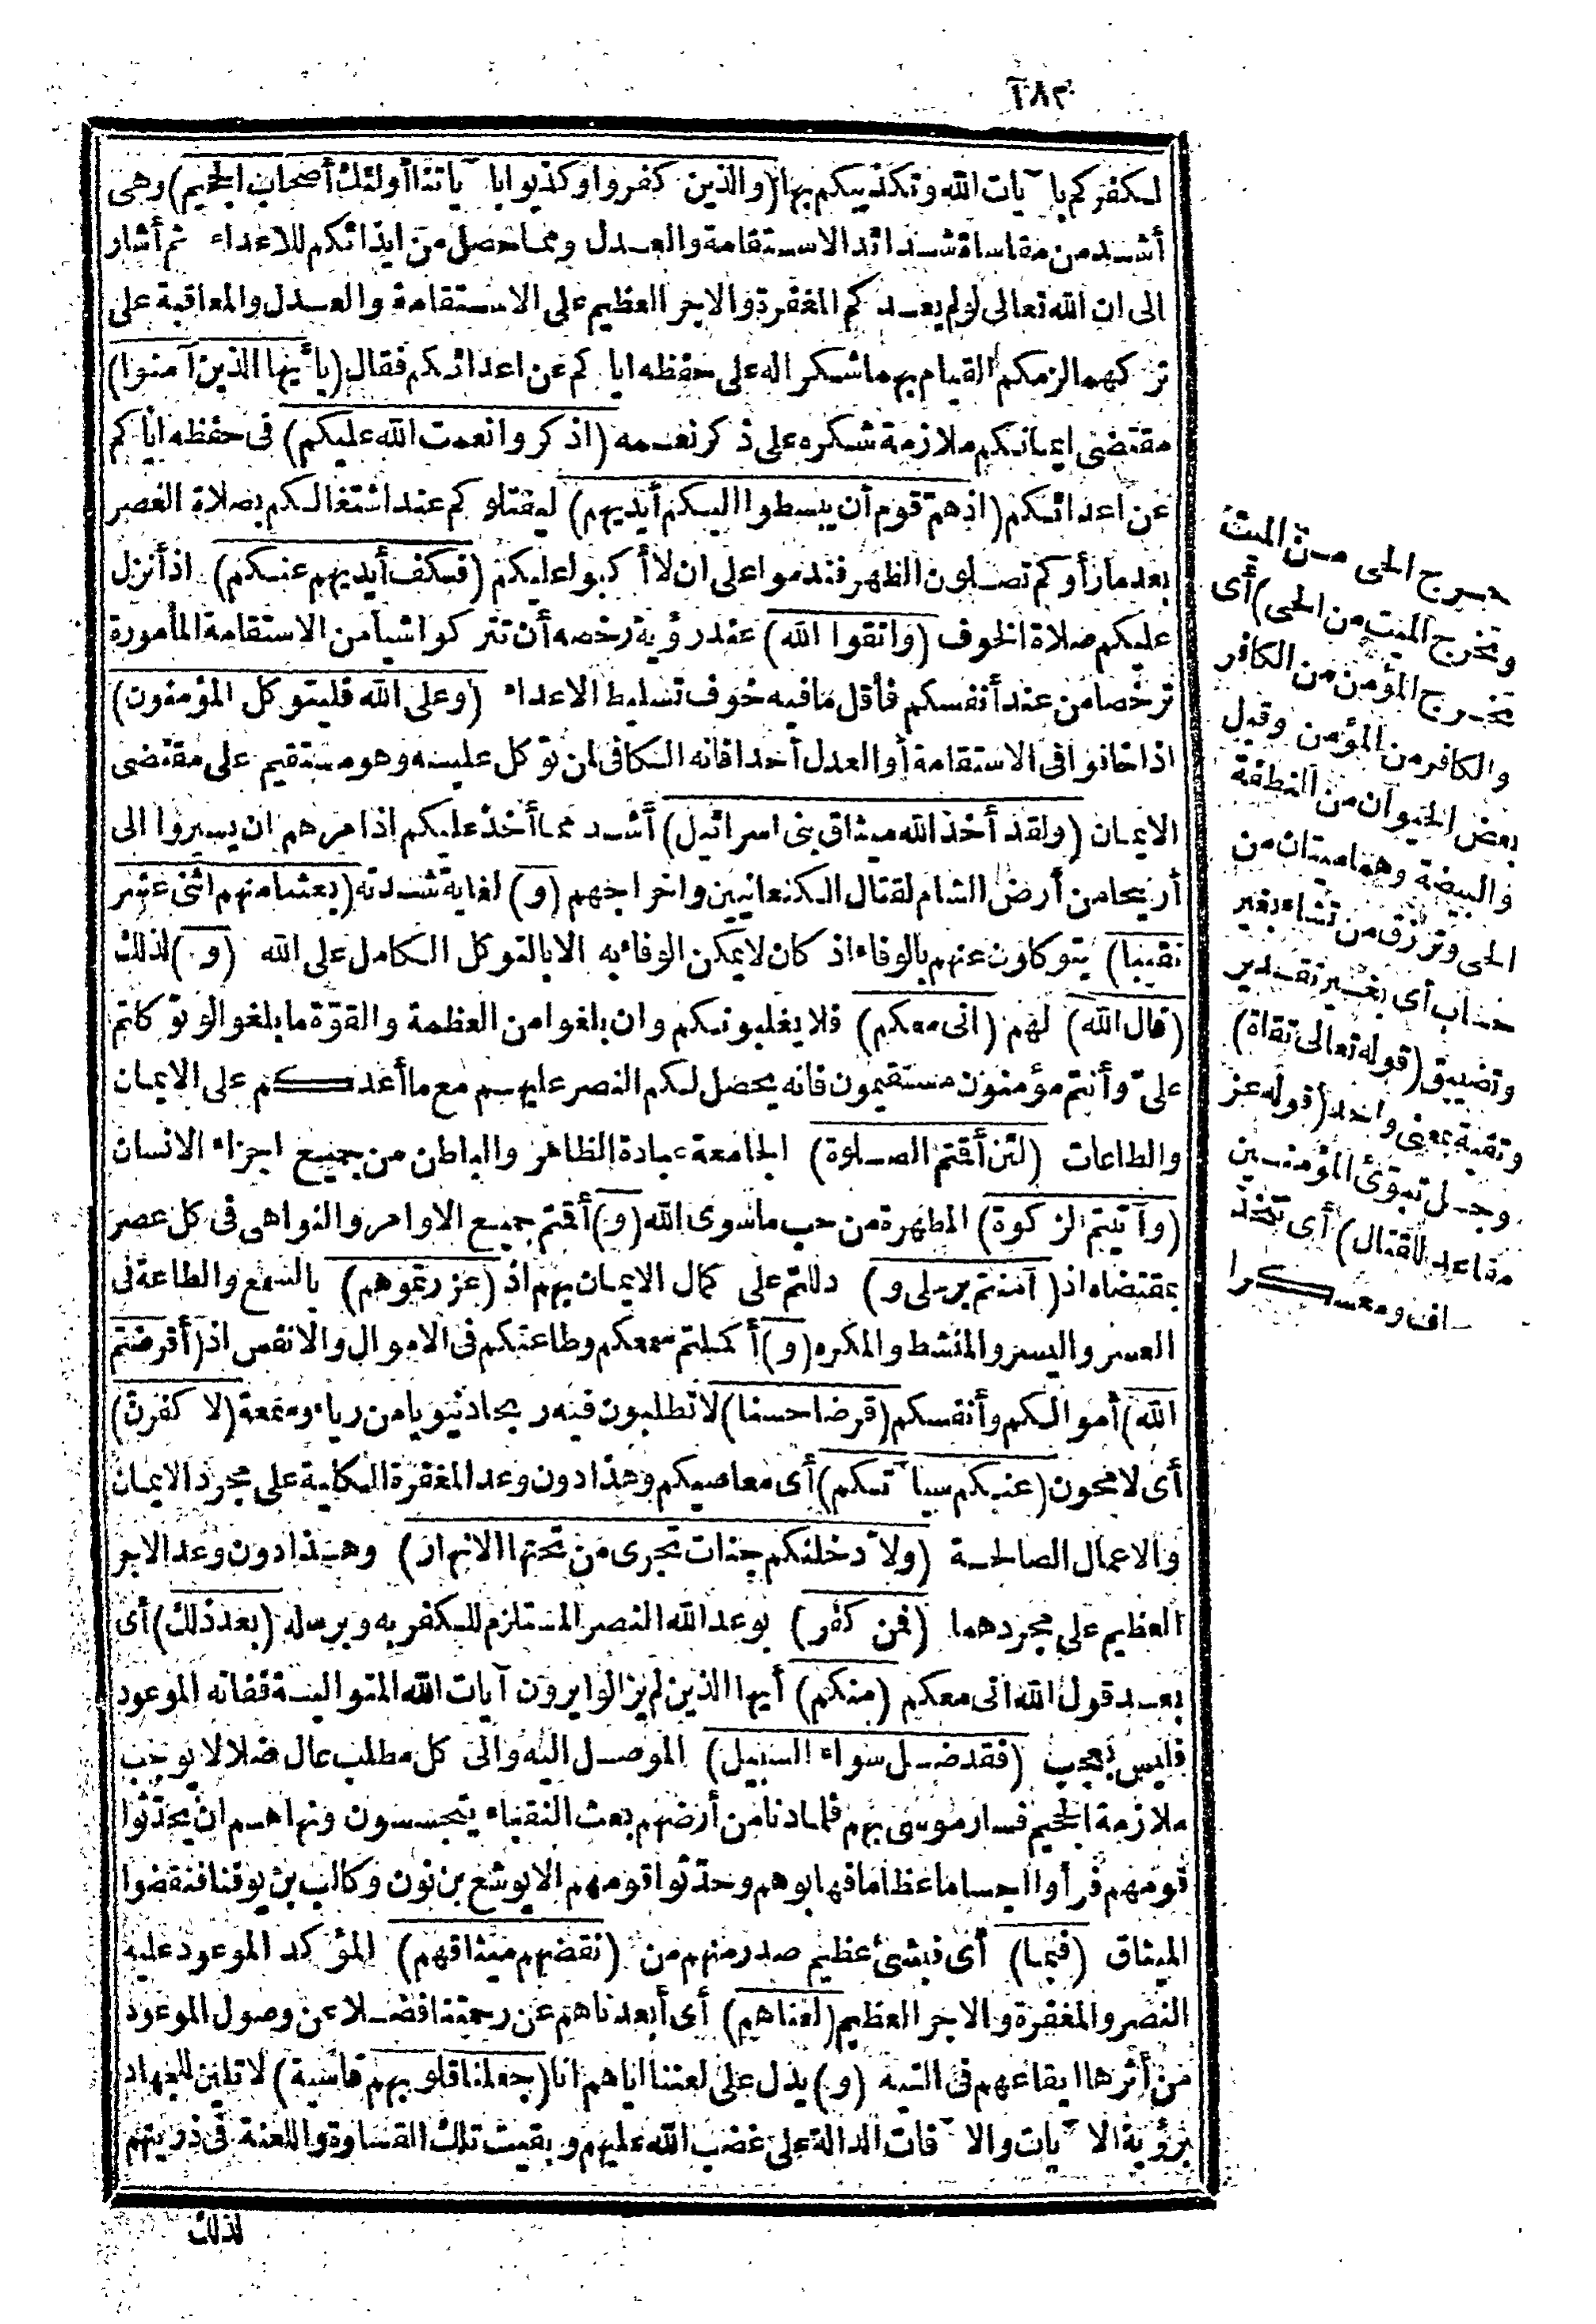 ١٨٢
لكفركم با آيات الله وتكذيبكم بها (والذين كفروا وكذبوا با آياتنا أولئك أصحاب الجحيم) وهى
أشد من مقاساة شدائد الاستقامة والعدل ومما حصل من ايذائكم للاعداء ثم أشار
الى ان الله تعالى لولم يعدكم المغفرة والاجر العظيم على الاستقامة والعدل والمعاقبة على
تركهما لزمكم القيام بهما شكرا له على حفظه اياكم عن اعدائكم فقال (يا أيها الذين آمنوا)
مقتضى ايمانكم ملازمة شكره على ذكر نعمه (اذكروا نعمت الله عليكم) فى حفظه اياكم
عن اعدائكم (اذهم قوم أن يبسطوا اليكم أيديهم) ليقتلوكم عند اشتغالكم بصلاة العصر
بعد ما رأوكم تصلون الظهر فندموا على ان لا أكبوا عليكم (فكف أيديهم عنكم) اذ أنزل
عليكم صلاة الخوف (واتقوا الله) عند رؤية رخصه أن تتركوا شيأ من الاستقامة المأمورة
ترخصا من عند أنفسكم فأقل ما فيه خوف تسليط الاعداء (وعلى الله فليتوكل المؤمنون)
اذا خافوا فى الاستقامة أو العدل أحدا فانه الكافى لمن توكل عليه وهو مستقيم على مقتضى
الايمان (ولقد أخذ الله ميثاق بنى اسرائيل) أشد مما أخذ عليكم اذ امرهم ان يسيروا الى
أريحا من أرض الشام لقتال الكنعانيين واخراجهم (و) لغاية شدته (بعثنا منهم اثنى عشر
نقيبا) يتوكلون عنهم بالوفاء اذ كان لا يمكن الوفاء به الا بالتوكل الكامل على الله (و) لذلك
(قال الله) لهم (انى معكم) فلا يغلبونكم وان بلغوا من العظمة والقوة ما بلغوا لو توكلتم
علىّ وأنتم مؤمنون مستقيمون فانه يحصل لكم النصر عليهم مع ما أعدكم على الايمان
والطاعات (لئن أقمتم الصلوة) الجامعة عبادة الظاهر والباطن من جميع اجزاء الانسان
(وآتيتم الزكوة) المطهرة من حب ماسوى الله (و) أقمتم جميع الاوامر والنواهى فى كل عصر
بمقتضاه اذ (آمنتم برسلى و) دللتم على كمال الايمان بهم اذ (عزرتموهم) بالسمع والطاعة فى
العسر واليسر والمنشط والمكره (و) أكملتم سمعكم وطاعتكم فى الاموال والانفس اذ (أقرضتم
الله) أموالكم وأنفسكم (قرضا حسنا) لا تطلبون فيه ربحا دنيويا من رياء وسمعة (لا كفرن)
أى لامحون (عنكم سيا آتكم) أى معاصيكم وهذا دون وعد المغفرة الكلية على مجرد الايمان
والاعمال الصالحة (ولا دخلنكم جنات تجرى من تحتها الانهار) وهذا دون وعد الاجر
العظيم على مجردهما (فمن كفر) بوعد الله النصر المستلزم للكفر به وبرسله (بعد ذلك) أى
بعد قول الله انى معكم (منكم) أيها الذين لم يزالوا يرون آيات الله المتوالية ففاته الموعود
فليس بعجب (فقد ضل سواء السبيل) الموصل اليه والى كل مطلب عال ضلالا يوجب
ملازمة الجحيم فسار موسى بهم فلما دنا من أرضهم بعث النقباء يتجسسون ونهاهم ان يحدثوا
قومهم فرأوا اجساما عظاما فهابوهم وحدثوا قومهم الا يوشع بن نون وكالب بن يوقنا فنقضوا
الميثاق (فبما) أى فبشئ عظيم صدر منهم من (نقضهم ميثاقهم) المؤكد الموعود عليه
النصر والمغفرة والاجر العظيم (لعناهم) أى أبعدناهم عن رحمتنا فضلا عن وصول الموعود
من أثرها ايقاعهم فى التيه (و) يدل على لعنتنا اياهم انا (جعلنا قلوبهم قاسية) لا تلين للجهاد
برؤية الا آيات والا آفات الدالة على غضب الله عليهم وبقيت تلك القساوة واللعنة فى ذريتهم
لذلك
تخرج الحى من الميت
وتخرج الميت من الحى) أى
تخرج المؤمن من الكافر
والكافر من المؤمن وقيل
بعض الحيوان من النطفة
والبيضة وهما ميتان من
الحى وترزق من تشاء بغير
حساب أى بغير تقدير
وتضييق (قوله تعالى تقاة)
وتقية بمعنى واحد (قوله عز
وجل تبوئ المؤمنين
مقاعد للقتال) أى تتخذ
ـاف ومعسكرا